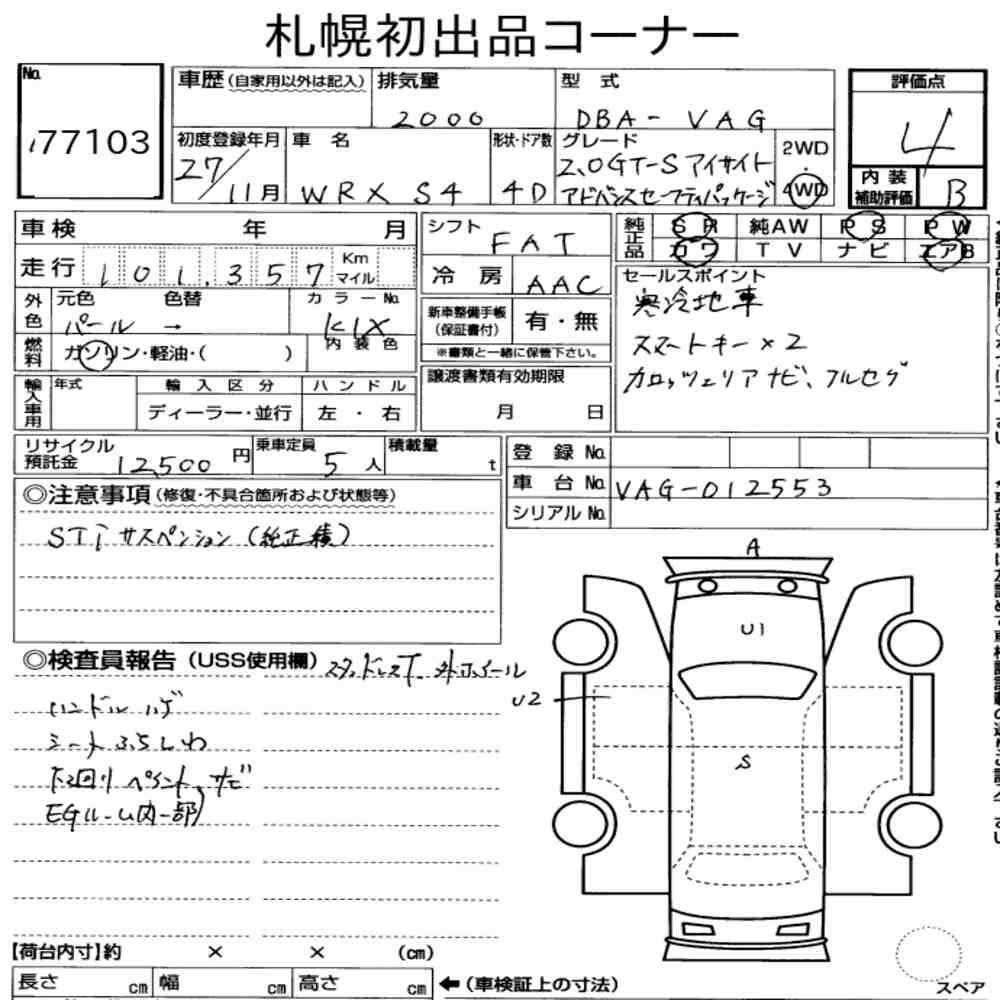 札幌初出品コーナー
No.
77103
車歴(自家用以外は記入)
排気量
2000
型式
DBA- VAG
評価点
4
内装
補助評価
B
初度登録年月
27/11月
車名
WRX S4
形状・ドア数
4D
グレード
2.0GT-S アイサイト
アドバンスセーフティパッケージ
2WD
4WD
車検 年 月
走行 101,357 Km マイル
外色
元色 色替 カラーNo.
パール → K1X
燃料
ガソリン・軽油・( )
内装色
輸入車用
年式
輸入区分
ディーラー・並行
ハンドル
左・右
シフト
FAT
冷房
AAC
新車整備手帳
(保証書付)
有・無
※書類と一緒に保管下さい。
譲渡書類有効期限
月 日
純正品
SR 純AW PS PW
カワ TV ナビ エアB
セールスポイント
寒冷地車
スマートキー×2
カロッツェリアナビ、フルセグ
リサイクル
預託金 12,500円
乗車定員
5人
積載量
t
登録No.
車台No. VAG-012553
シリアルNo.
◎注意事項(修復・不具合箇所および状態等)
STi サスペンション(純正積)
◎検査員報告(USS使用欄) スタッドレスT 外ホイール
ハンドルハゲ
シートふちしわ
下回りペイント、サビ
EGルーム内一部
A
U1
U2
S
スペア
【荷台内寸】約 × × (cm)
長さ cm 幅 cm 高さ cm
←(車検証上の寸法)